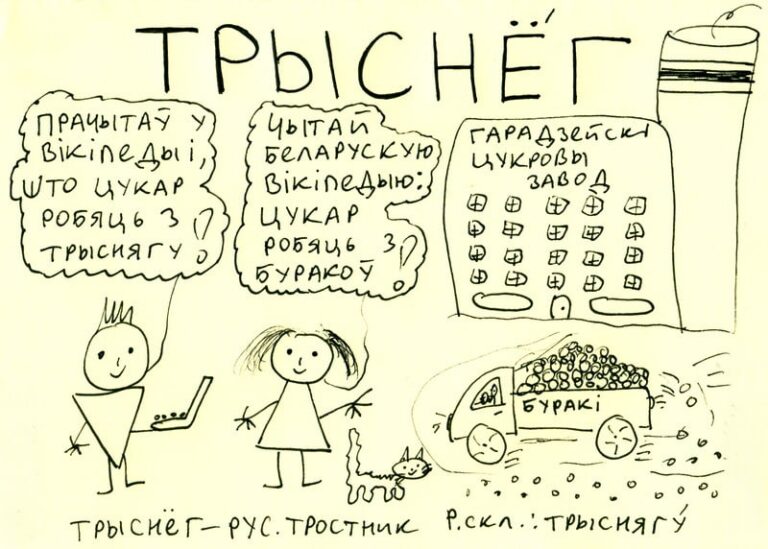 ТРЫСНЁГ
ПРАЧЫТАЎ У
ВІКІПЕДЫІ,
ШТО ЦУКАР
РОБЯЦЬ З
ТРЫСНЯГУ!
ЧЫТАЙ
БЕЛАРУСКУЮ
ВІКІПЕДЫЮ:
ЦУКАР
РОБЯЦЬ З
БУРАКОЎ!
ГАРАДЗЕЙСКІ
ЦУКРОВЫ
ЗАВОД
БУРАКІ
ТРЫСНЁГ – РУС. ТРОСТНИК Р. СКЛ.: ТРЫСНЯГУ́